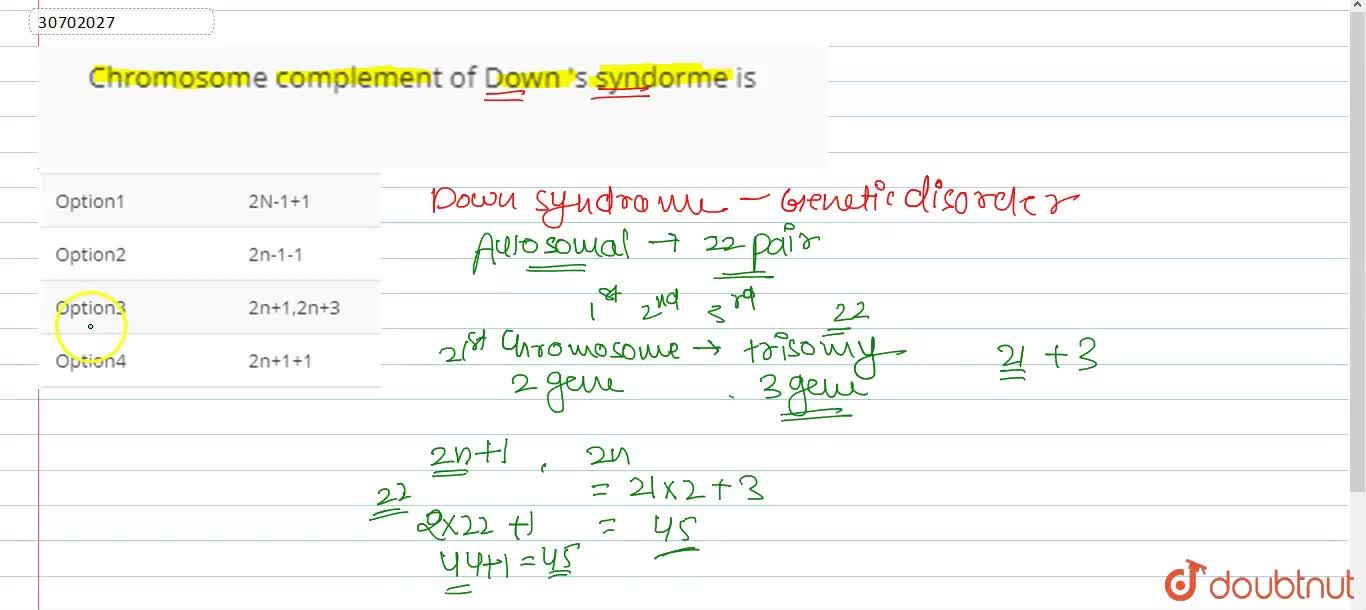 30702027
Chromosome complement of Down 's syndorme is
Option1 2N-1+1
Option2 2n-1-1
Option3 2n+1,2n+3
Option4 2n+1+1
Down syndrome - Genetic disorder
Autosomal → 22 pair
1st 2nd 3rd 22
21st Chromosome → trisomy 21 + 3
2 gene 3 gene
2n+1 , 2n
22 = 21×2+3
2×22 +1 = 45
44+1=45
doubtnut